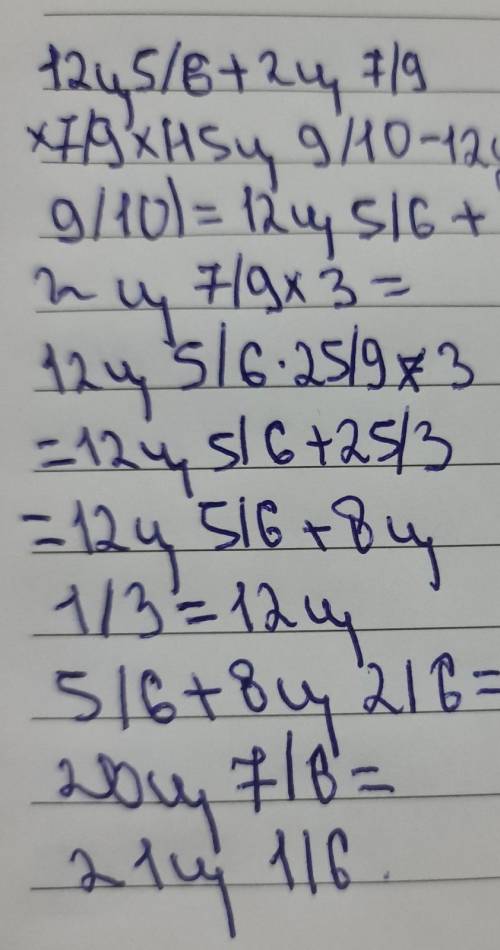 12ц5/6+2ц 7/9
×7/9×(15ц 9/10-12ц
9/10)=12ц 5/6+
2 ц 7/9×3=
12ц 5/6·25/9×3
=12ц 5/6+25/3
=12ц 5/6+8ц
1/3=12ц
5/6+8ц 2/6=
20ц 7/6=
21ц 1/6.